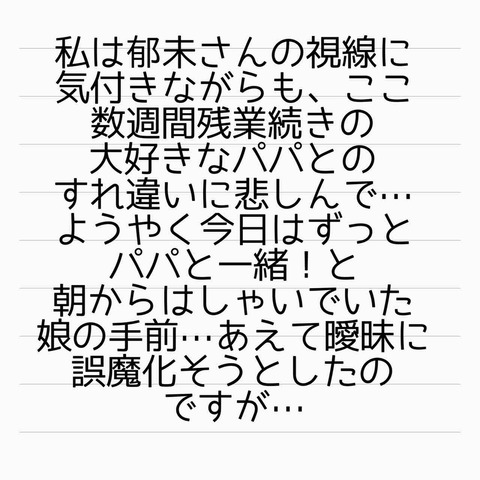 私は郁未さんの視線に
気付きながらも、ここ
数週間残業続きの
大好きなパパとの
すれ違いに悲しんで…
ようやく今日はずっと
パパと一緒！と
朝からはしゃいでいた
娘の手前…あえて曖昧に
誤魔化そうとしたの
ですが…